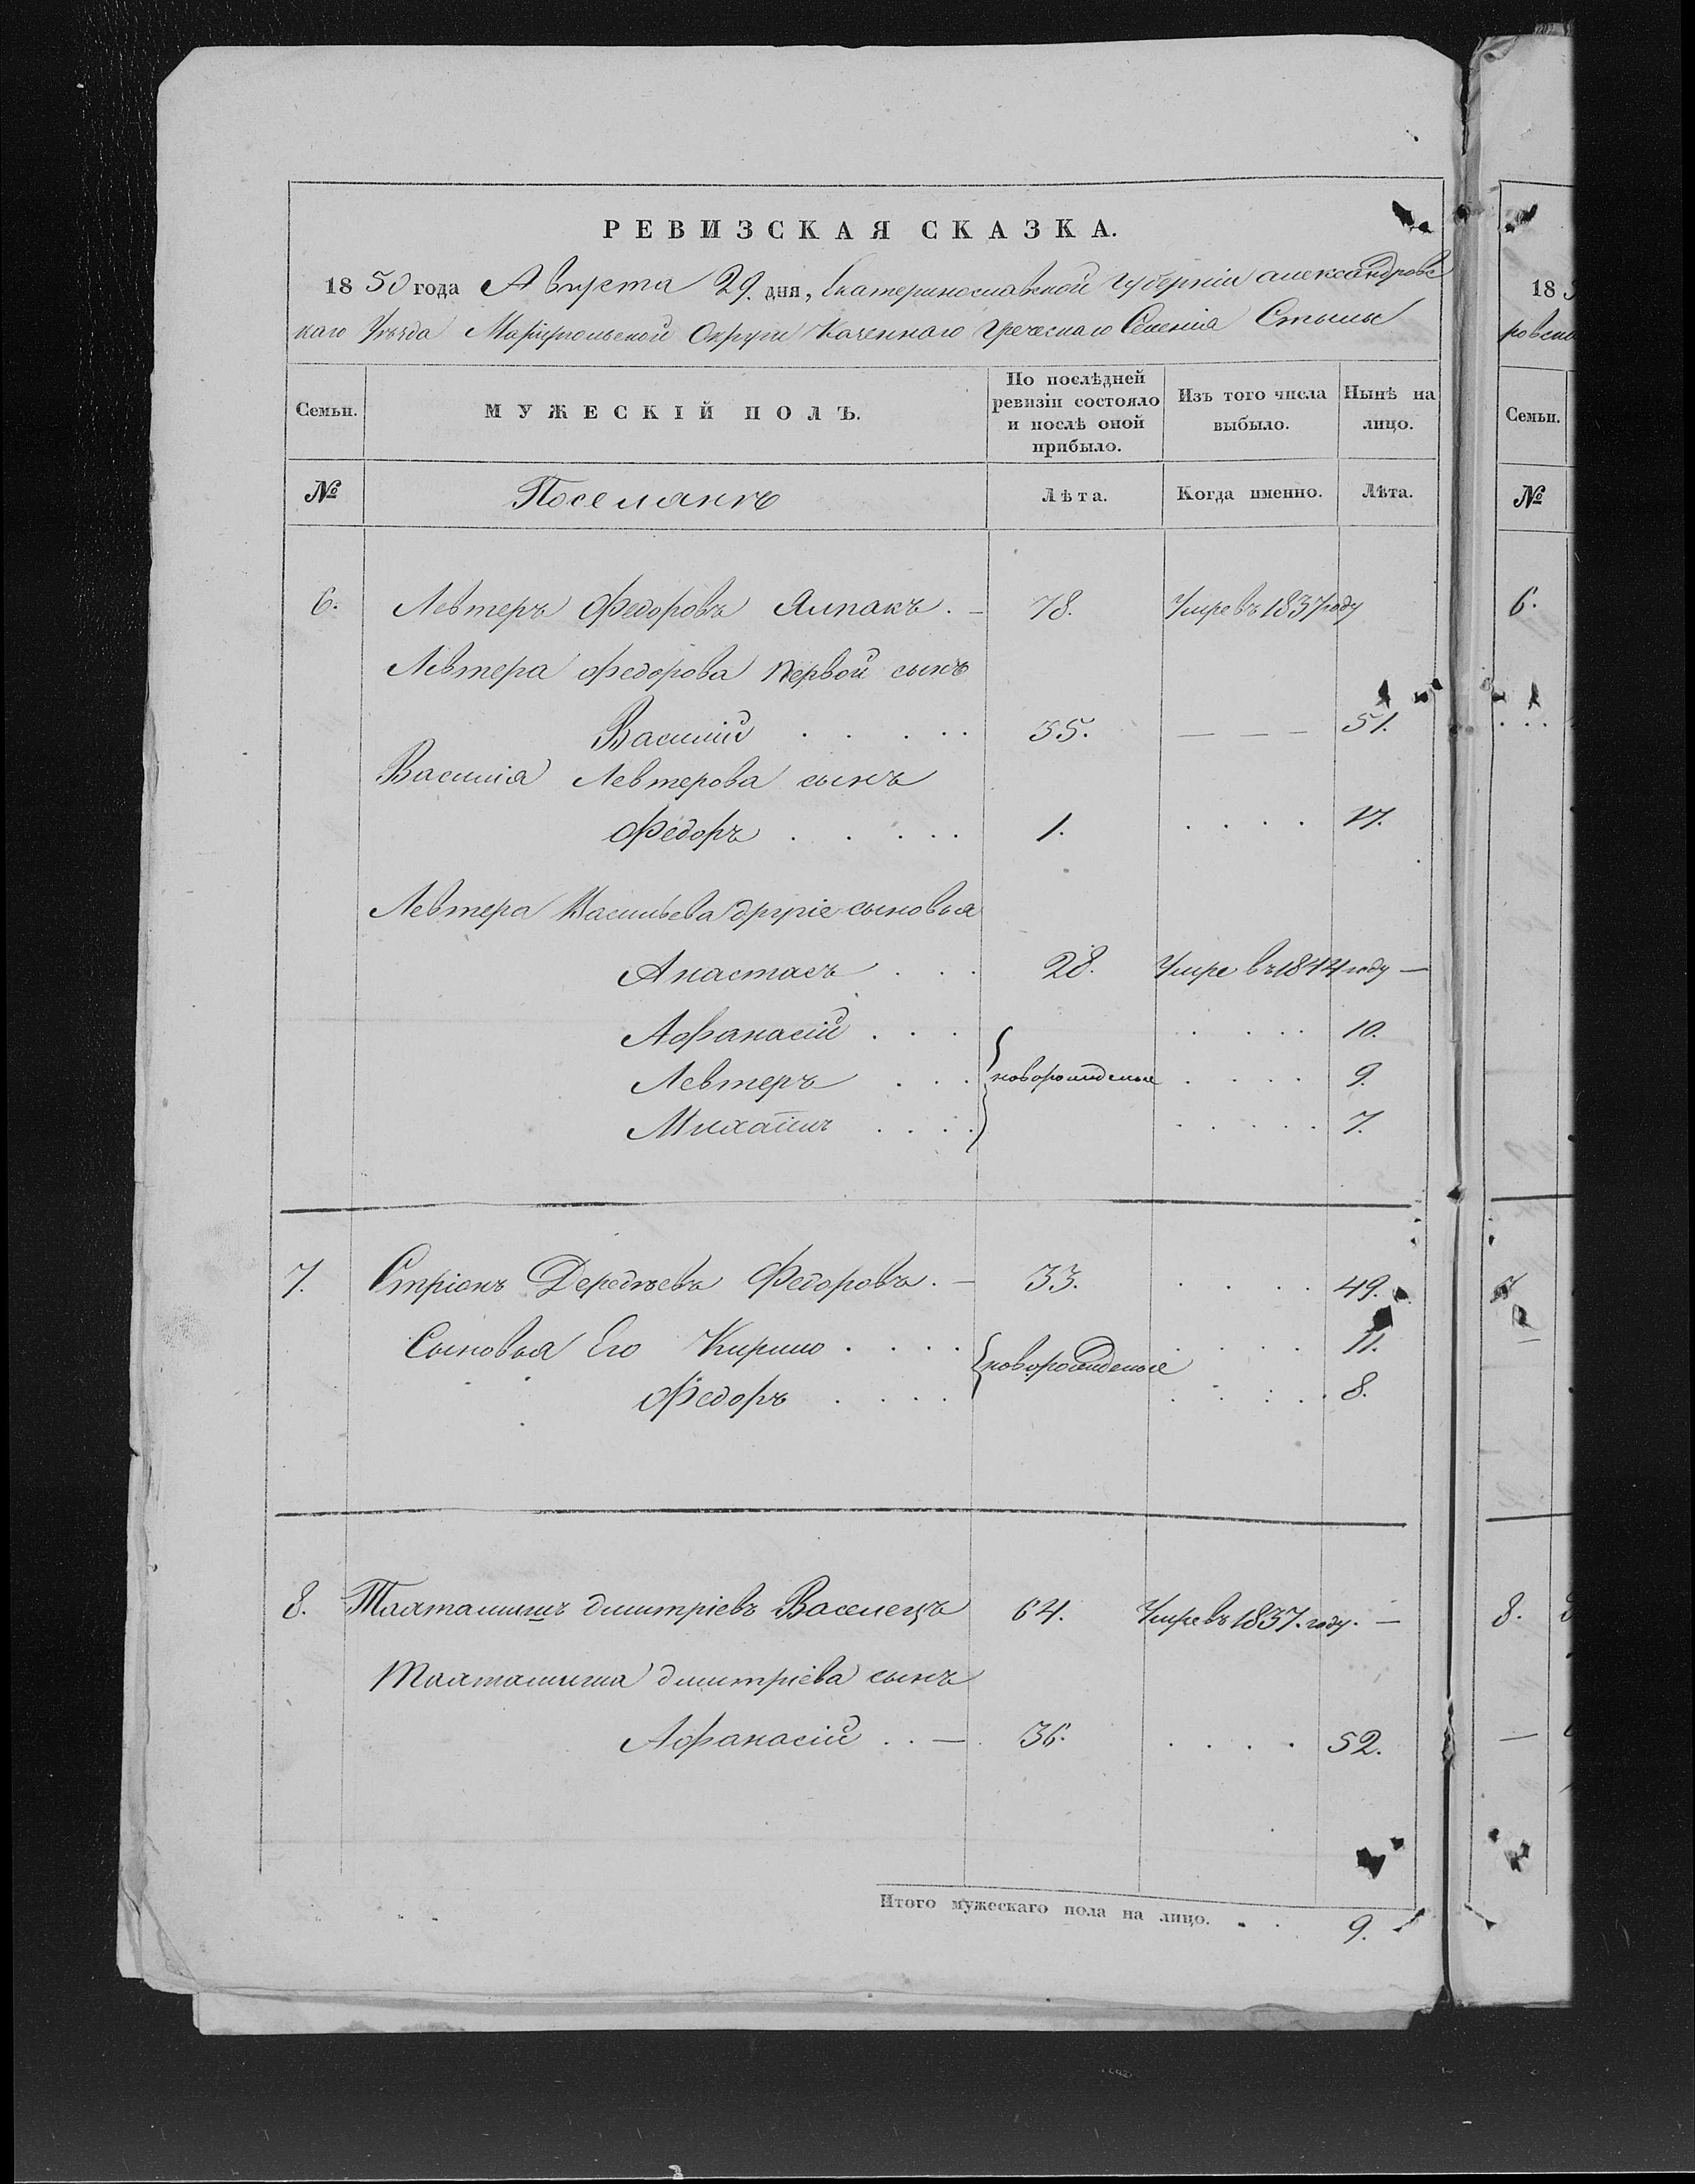 РЕВИЗСКАЯ СКАЗКА.
1850 года Августа 29. дня, Екатеринославской Губерніи Александровс
каго Уѣзда Маріупольской Округи Казеннаго Греческаго Селенія Стылы
Семьи.
МУЖЕСКІЙ ПОЛЪ.
По послѣдней ревизіи состояло и послѣ оной прибыло.
Изъ того числа выбыло.
Нынѣ на лицо.
№
Поселянъ
Лѣта.
Когда именно.
Лѣта.
6. Левтеръ Федоровъ Ялпакъ. — 78. Умре въ 1837 году
Левтера Федорова первой сынъ
Василій . . . . . 35. — — — 51.
Василія Левтерова сынъ
Федоръ . . . . . 1. . . . . 17.
Левтера Васильева другіе сыновья
Анастасъ . . . 28. Умре въ 1844 году —
Афанасій . . . . . . . 10.
Левтеръ . . . новорожденые . . . . 9.
Михаилъ . . . . . . . . . 7.
7. Стріонъ Федоровъ. — 33. . . . . 49.
Сыновья Его Кирило . . . . новорожденые . . . 11.
Федоръ . . . . . . . . 8.
8. Дмитріевъ Васелецъ 64. Умре въ 1837. году. —
Дмитріева сынъ
Афанасій . . — 36. . . . . 52.
Итого мужескаго пола на лицо. . . 9.
18 5
ровска
Семьи.
№
6.
7
8.